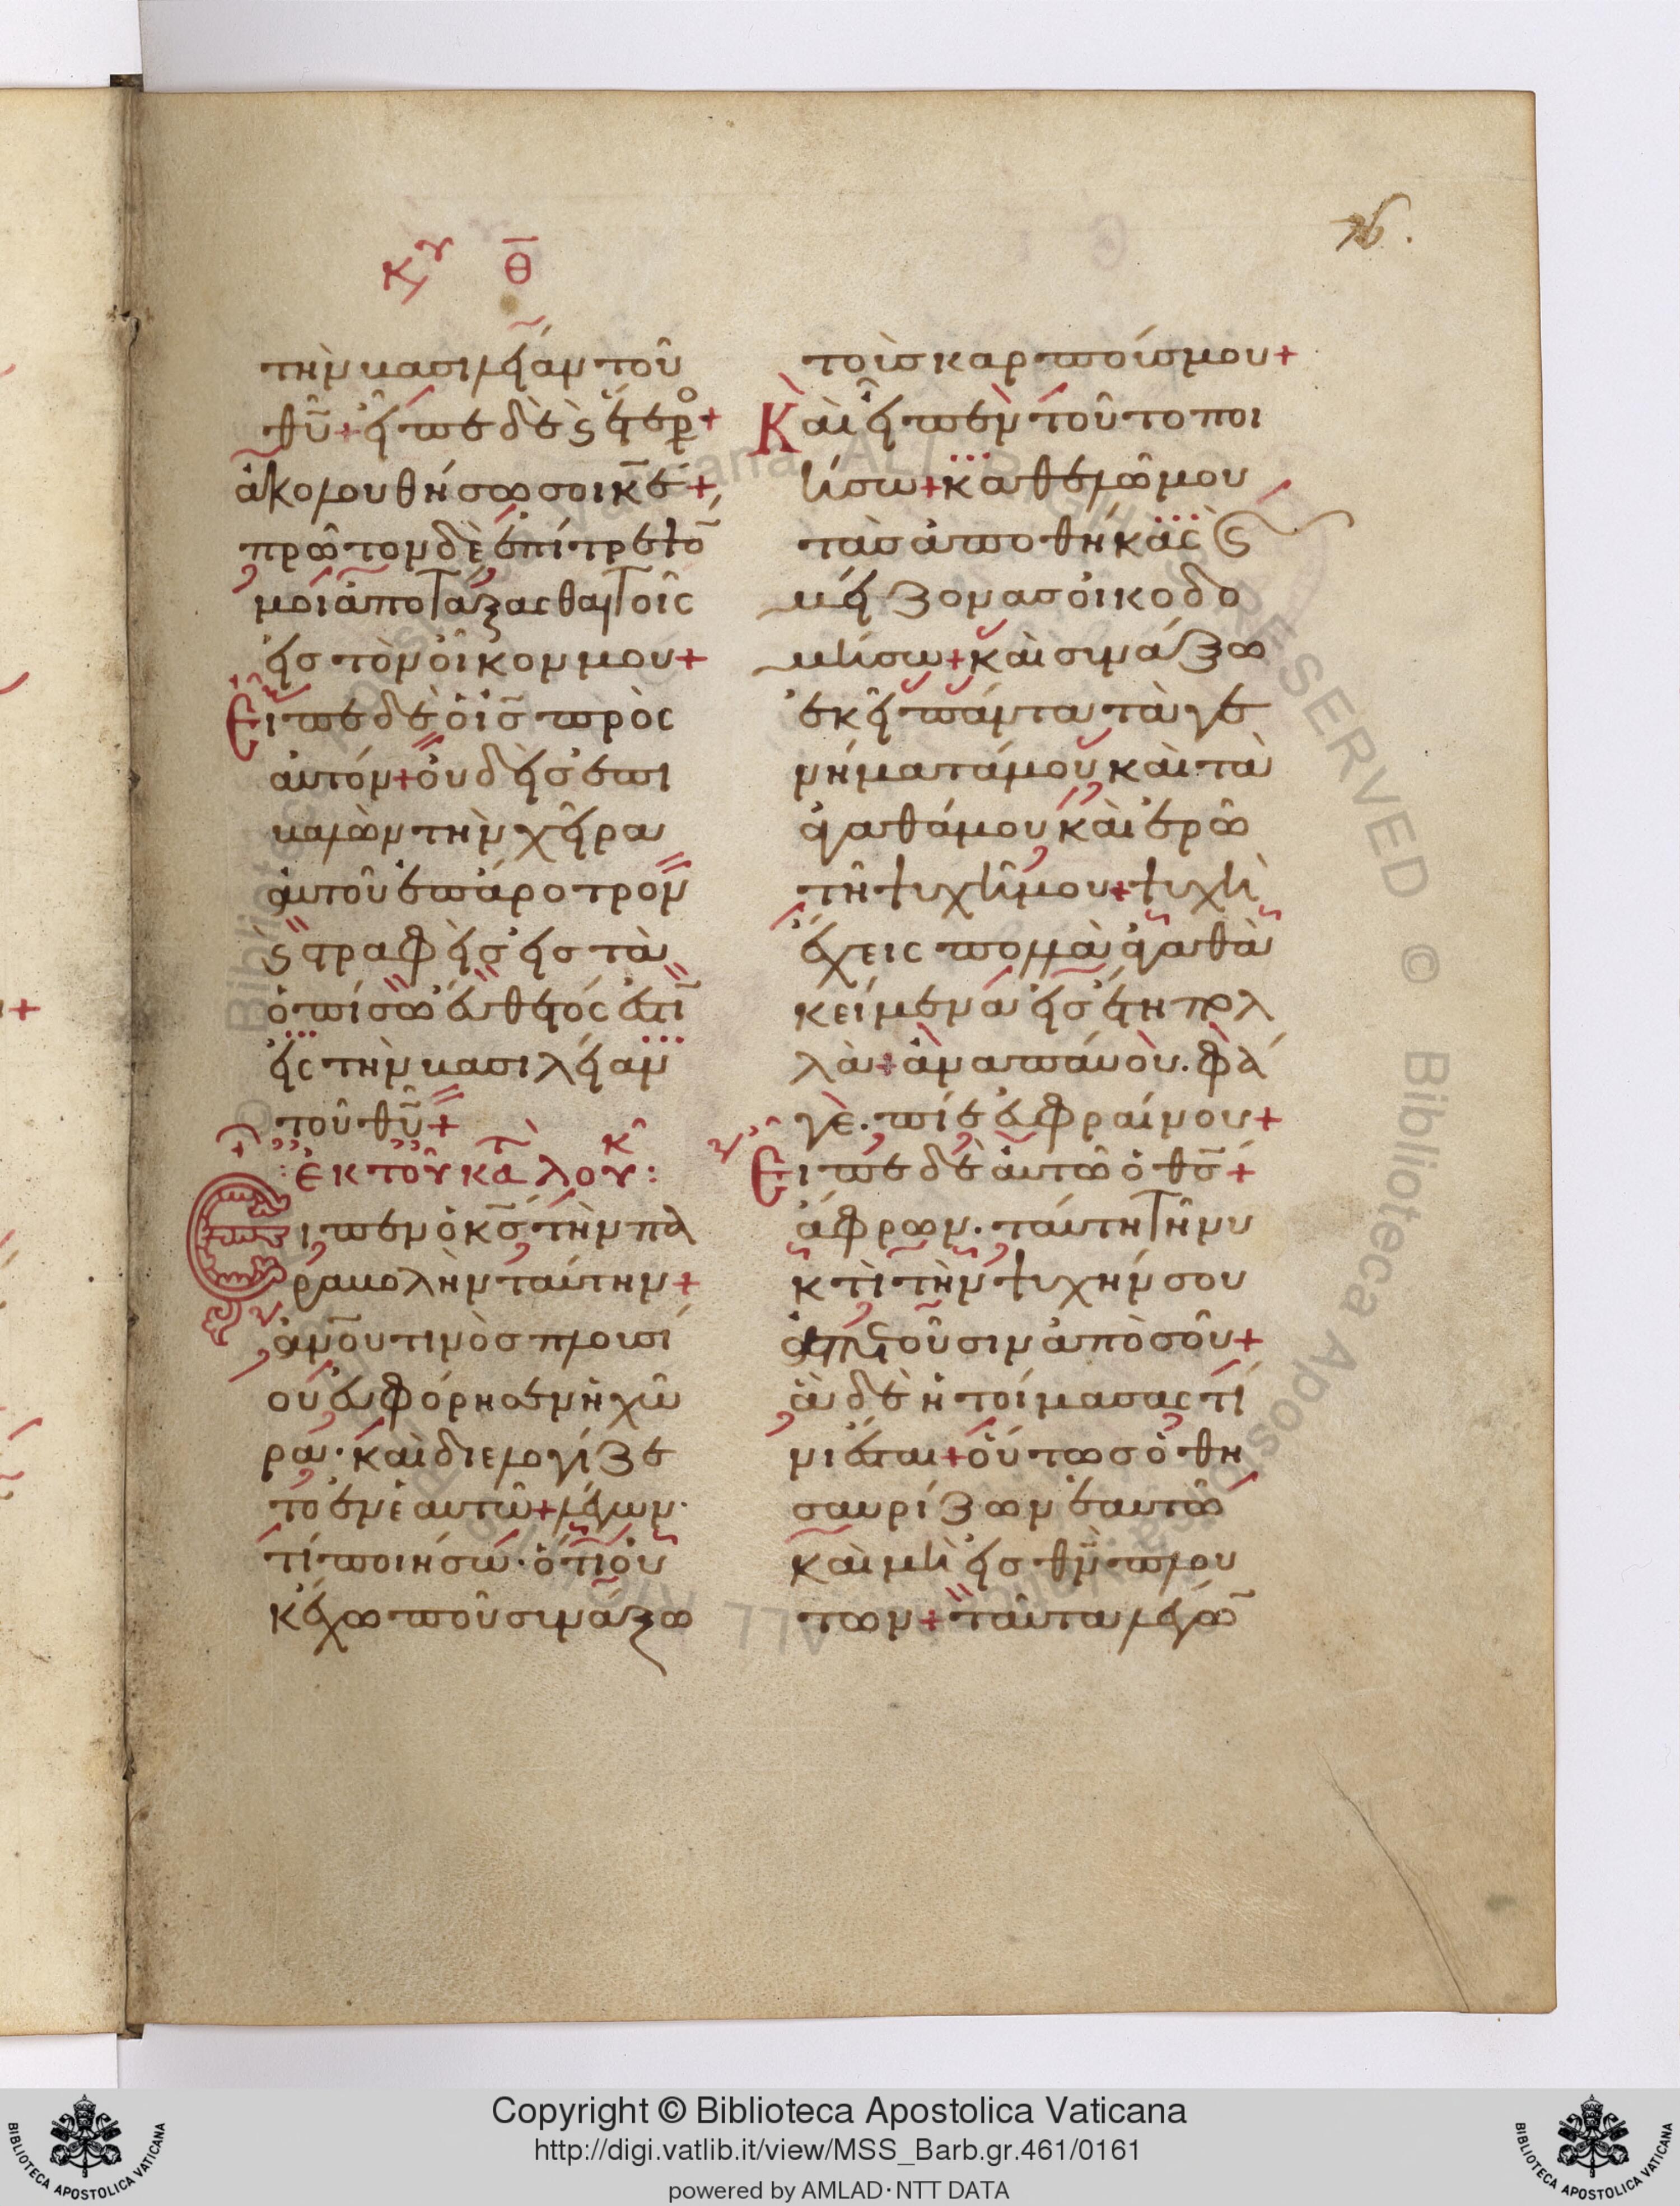 κυ θ
76.
τὴν βασιλείαν τοῦ
θῦ+ εἶπε δὲ ἕτερο+
ἀκολουθήσω σοι κε+
πρῶτον δὲ ἐπίτρεψό
μοι ἀποτάξασθαι τοῖς
εἰς τὸν οἶκον μου+
Εἶπε δὲ ὁ ις πρὸς
αὐτόν+ οὐδεὶς ἐπι
βαλὼν τὴν χεῖρα
αὐτοῦ ἐπ ἄροτρον
στραφεὶς εἰς τὰ
ὀπίσω εὔθετός ἐστι
εἰς τὴν βασιλείαν
τοῦ θῦ+
ἐκ τοῦ κατα λουκ:
Εἶπεν ὁ κς τὴν πα
ραβολὴν ταύτην+
ανου τινὸς πλουσί
ου εὐφόρησεν ἡ χώ
ρα· καὶ διελογίζε
το ἐν ἑαυτῶ+ λέγων·
τί ποιήσω· ὅτι οὐ
κ ἔχω ποῦ συνάξω
τοὺς καρπούς μου+
Καὶ εἶπεν τοῦτο ποι
ήσω+ καθελῶ μου
τὰς ἀποθήκας ϛ
μείζονας οἰκοδο
μήσω+ καὶ συνάξω
ἐκεῖ πάντα τὰ γε
νήματά μου καὶ τὰ
ἀγαθά μου καὶ ἐρῶ
τῆ ψυχῆ μου+ ψυχὴ
ἔχεις πολλὰ ἀγαθὰ
κείμενα εἰς ἔτη πολ
λὰ+ ἀναπαύου. φά
γε. πίε εὐφραίνου+
Εἶπε δὲ αὐτῶ ὁ θς+
ἄφρων. ταύτη τῆ νυ
κτὶ τὴν ψυχήν σου
ἀπαιτοῦσιν ἀπὸ σοῦ+
ἃ δὲ ἡτοίμασας τί
νι ἔσται+ οὕτως ὁ θη
σαυρίζων ἑαυτῶ
καὶ μὴ εἰς θν πλου
των+ ταῦτα λέγω
Copyright © Biblioteca Apostolica Vaticana
http://digi.vatlib.it/view/MSS_Barb.gr.461/0161
powered by AMLAD·NTT DATA